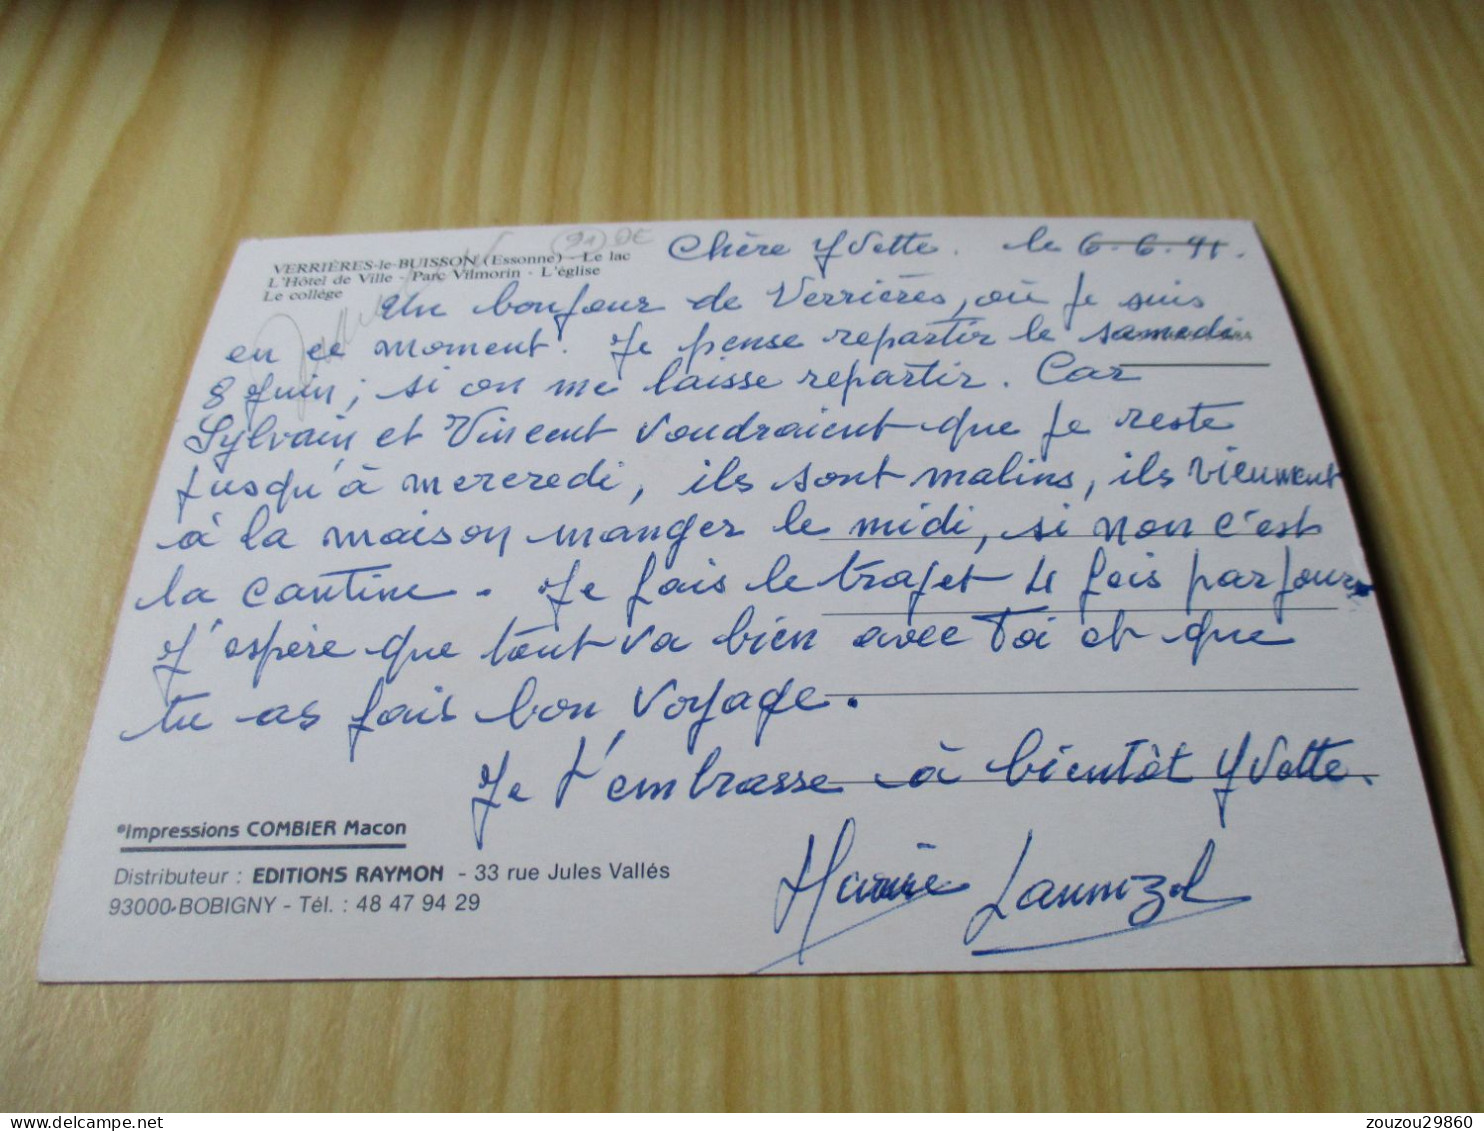 VERRIÈRES-le-BUISSON (Essonne) - Le lac
L'Hôtel de Ville - Parc Vilmorin - L'église
Le collège
91
Chère Yvette. le 6-6.91.
Un bonjour de Verrières, où je suis
en ce moment. Je pense repartir le samedi
8 Juin; si on me laisse repartir. Car
Sylvain et Vincent voudraient que je reste
jusqu'à mercredi, ils sont malins, ils viennent
à la maison manger le midi, si non c'est
la cantine. Je fais le trajet 4 fois par jour.
J'espère que tout va bien avec Toi et que
tu as fais bon voyage.
Je t'embrasse à bientôt Yvette.
*Impressions COMBIER Macon
Distributeur : EDITIONS RAYMON - 33 rue Jules Vallés
93000 BOBIGNY - Tél. : 48 47 94 29
zouzou29860